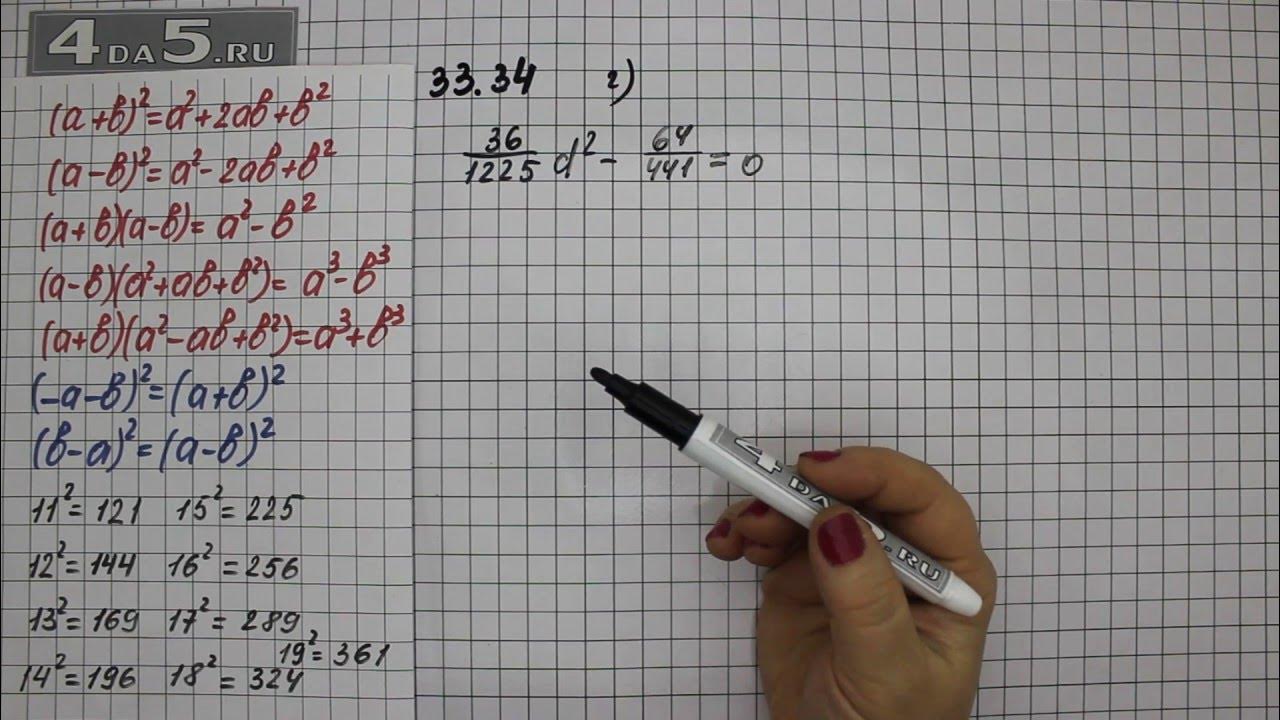 4DA5.RU
(a+b)²=a²+2ab+b²
(a-b)²=a²-2ab+b²
(a+b)(a-b)=a²-b²
(a-b)(a²+ab+b²)=a³-b³
(a+b)(a²-ab+b²)=a³+b³
(-a-b)²=(a+b)²
(b-a)²=(a-b)²
11²=121 15²=225
12²=144 16²=256
13²=169 17²=289
19²=361
14²=196 18²=324
33.34 г)
36/1225 d² - 64/441 = 0
4DA5.RU